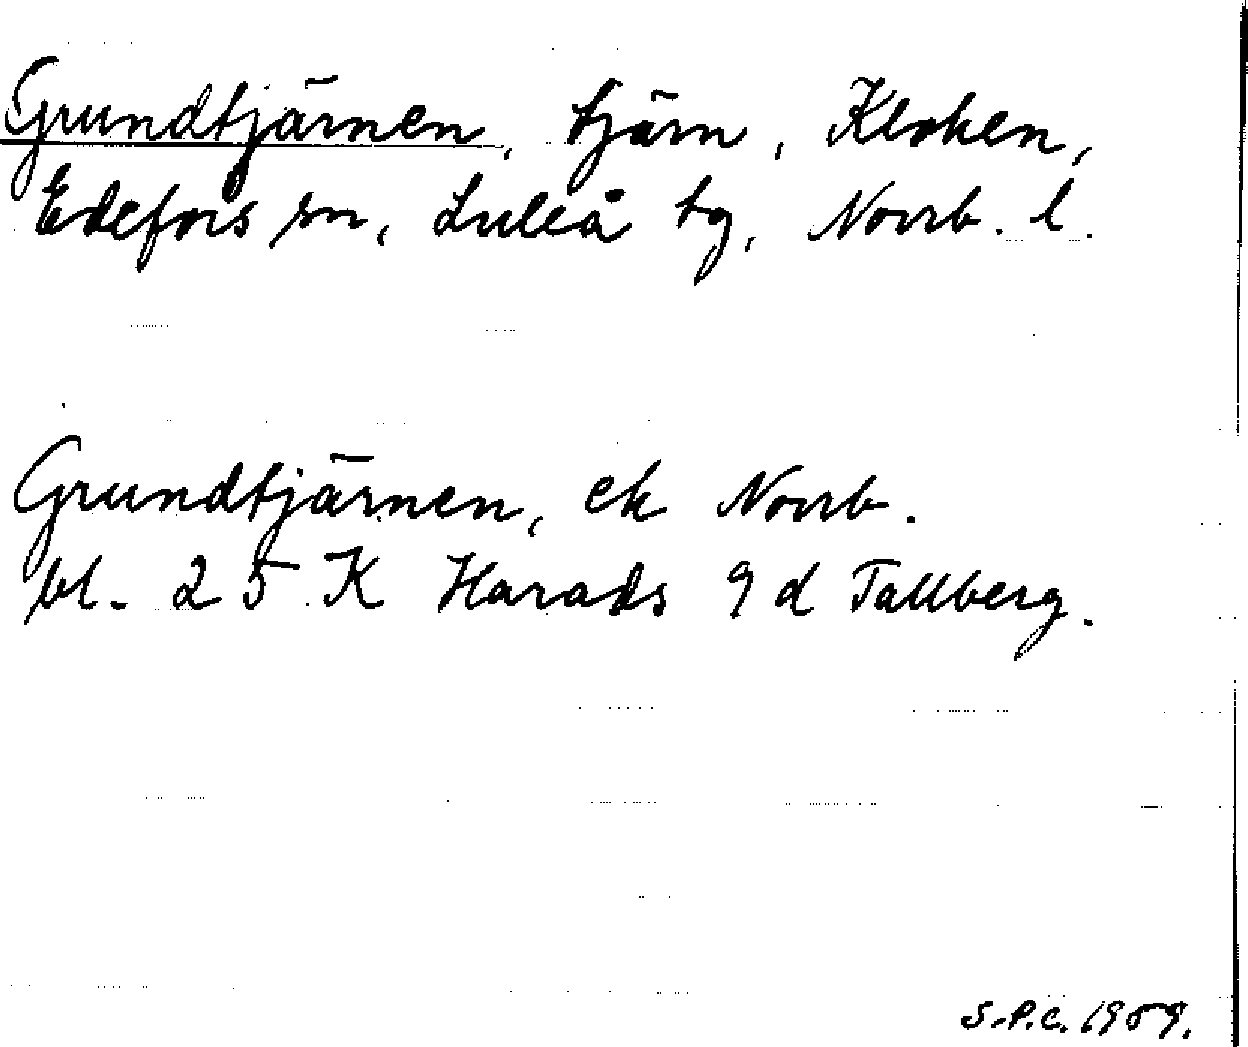 Grundtjärnen, tjärn, Kloken,
Edefors sn, Luleå tg, Norrb. l.
Grundtjärnen, ek Norrb.
bl. 25 K Harads 9 d Tallberg.
S.P.C. 1959.